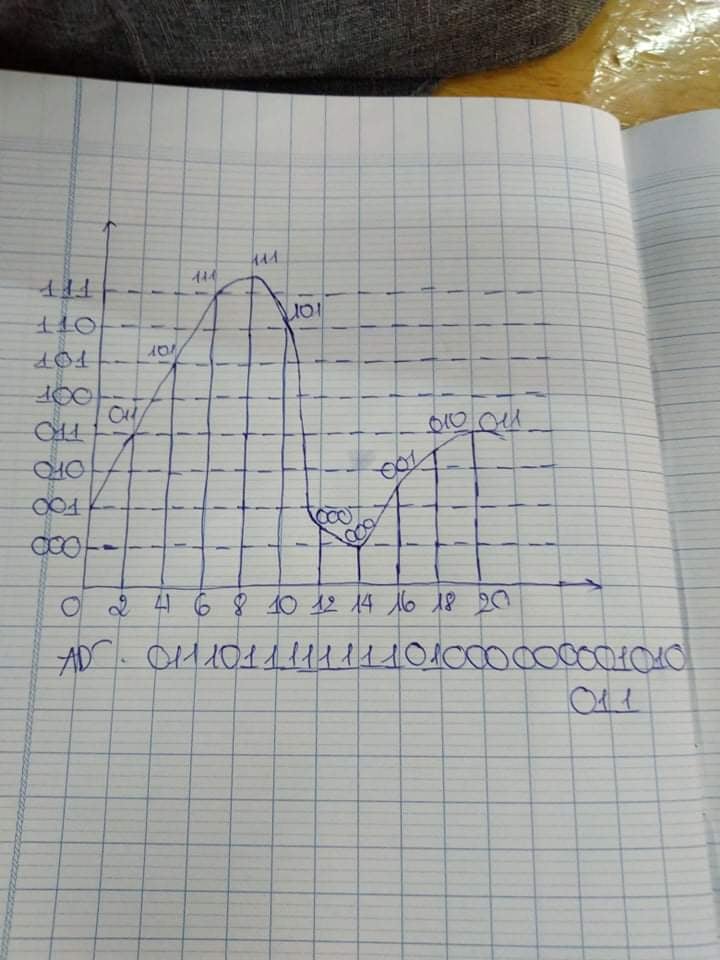 111
111
111
101
110
101
101
100
011
010 011
011
001
010
001
000
000
000
0 2 4 6 8 10 12 14 16 18 20
AD . 011101111111101000000001010
011